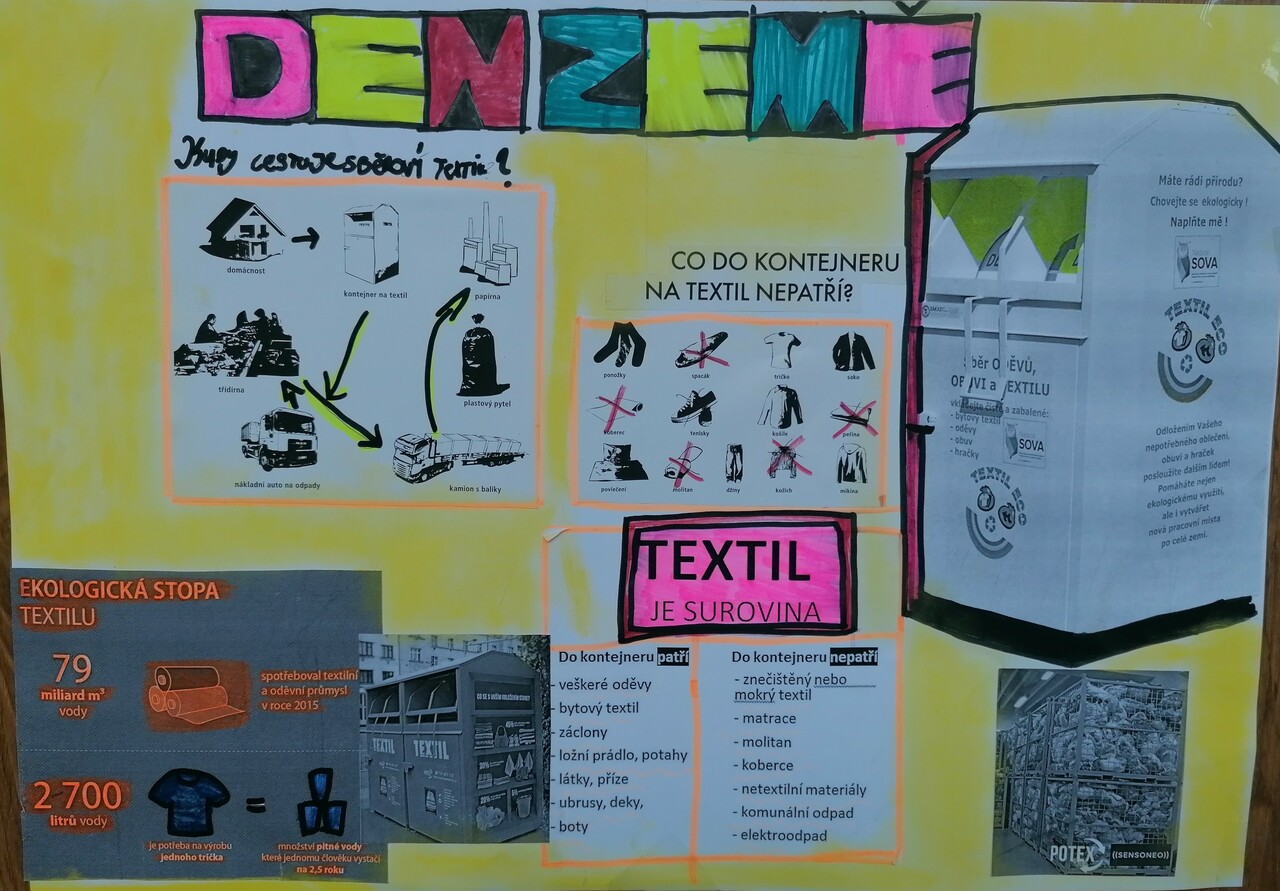 DEN ZEMĚ
Kudy cestuje sběrový textil?
domácnost
kontejner na textil
papírna
třídírna
plastový pytel
nákladní auto na odpady
kamion s balíky
CO DO KONTEJNERU
NA TEXTIL NEPATŘÍ?
ponožky
spacák
tričko
sako
koberec
tenisky
košile
peřina
povlečení
molitan
džíny
kožich
mikina
Máte rádi přírodu?
Chovejte se ekologicky!
Naplňte mě!
SOVA
TEXTIL ECO
Sběr ODĚVŮ,
OBUVI a TEXTILU
vkládejte čisté a zabalené:
- bytový textil
- oděvy
- obuv
- hračky
SOVA
TEXTIL ECO
Odložením Vašeho
nepotřebného oblečení,
obuvi a hraček
posloužíte dalším lidem!
Pomáháte nejen
ekologickému využití,
ale i vytvářet
nová pracovní místa
po celé zemi.
TEXTIL
JE SUROVINA
Do kontejneru patří
- veškeré oděvy
- bytový textil
- záclony
- ložní prádlo, potahy
- látky, příze
- ubrusy, deky,
- boty
Do kontejneru nepatří
- znečištěný nebo
mokrý textil
- matrace
- molitan
- koberce
- netextilní materiály
- komunální odpad
- elektroodpad
EKOLOGICKÁ STOPA
TEXTILU
79
miliard m³
vody
spotřeboval textilní
a oděvní průmysl
v roce 2015
2 700
litrů vody
je potřeba na výrobu
jednoho trička
=
množství pitné vody
které jednomu člověku vystačí
na 2,5 roku
TEXTIL
TEXTIL
POTEX
((SENSONEO))